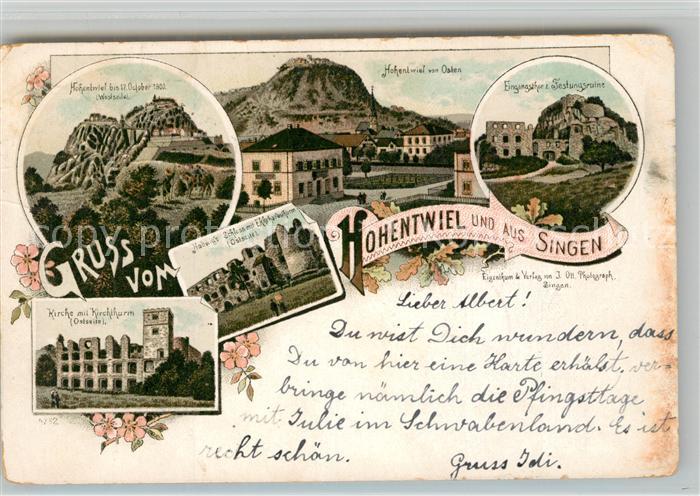 Hohentwiel bis 17. October 1800.
(Westseite).
Hohentwiel von Osten
Eingangsthor z. Festungsruine
GRUSS VOM
HOHENTWIEL UND AUS SINGEN
Schloss mit
(Ostseite).
Eigenthum & Verlag von J. Ott, Photograph,
Singen.
Kirche mit Kirchthurm
(Ostseite).
Lieber Albert!
Du wist Dich wundern, dass
Du von hier eine Karte erhälst, ver-
bringe nämlich die Pfingsttage
mit Julie im Schwabenland. Es ist
recht schön.
Gruss Idi.